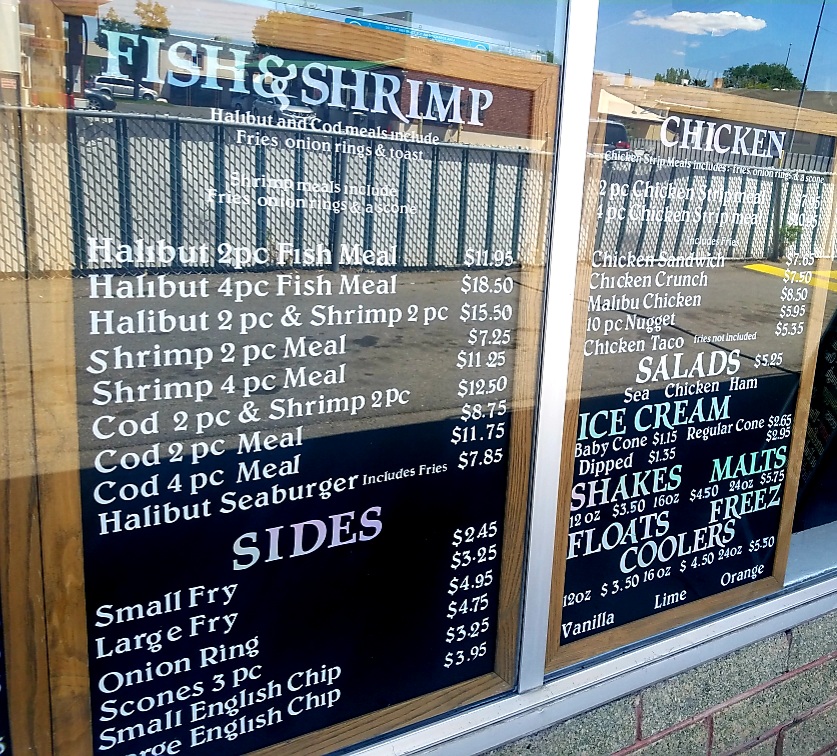 FISH & SHRIMP
Halibut and Cod meals include
Fries onion rings & toast
Shrimp meals include
Fries onion rings & a scone
Halibut 2pc Fish Meal $11.95
Halibut 4pc Fish Meal $18.50
Halibut 2 pc & Shrimp 2 pc $15.50
Shrimp 2 pc Meal $7.25
Shrimp 4 pc Meal $11.25
Cod 2 pc & Shrimp 2pc $12.50
Cod 2 pc Meal $8.75
Cod 4 pc Meal $11.75
Halibut Seaburger Includes Fries $7.85
SIDES
Small Fry $2.45
Large Fry $3.25
Onion Ring $4.95
Scones 3 pc $4.75
Small English Chip $3.25
Large English Chip $3.95
CHICKEN
Chicken Strip Meals includes: fries, onion rings & a scone
2 pc Chicken Strip meal
4 pc Chicken Strip meal
Includes Fries
Chicken Sandwich $7.65
Chicken Crunch $7.50
Malibu Chicken $8.50
10 pc Nugget $5.95
Chicken Taco fries not included $5.35
SALADS $5.25
Sea Chicken Ham
ICE CREAM
Baby Cone $1.15 Regular Cone $2.65
Dipped $1.35 $2.95
SHAKES MALTS
12 oz $3.50 16oz $4.50 24oz $5.75
FLOATS FREEZ
COOLERS
12oz $3.50 16 oz $4.50 24oz $5.50
Vanilla Lime Orange